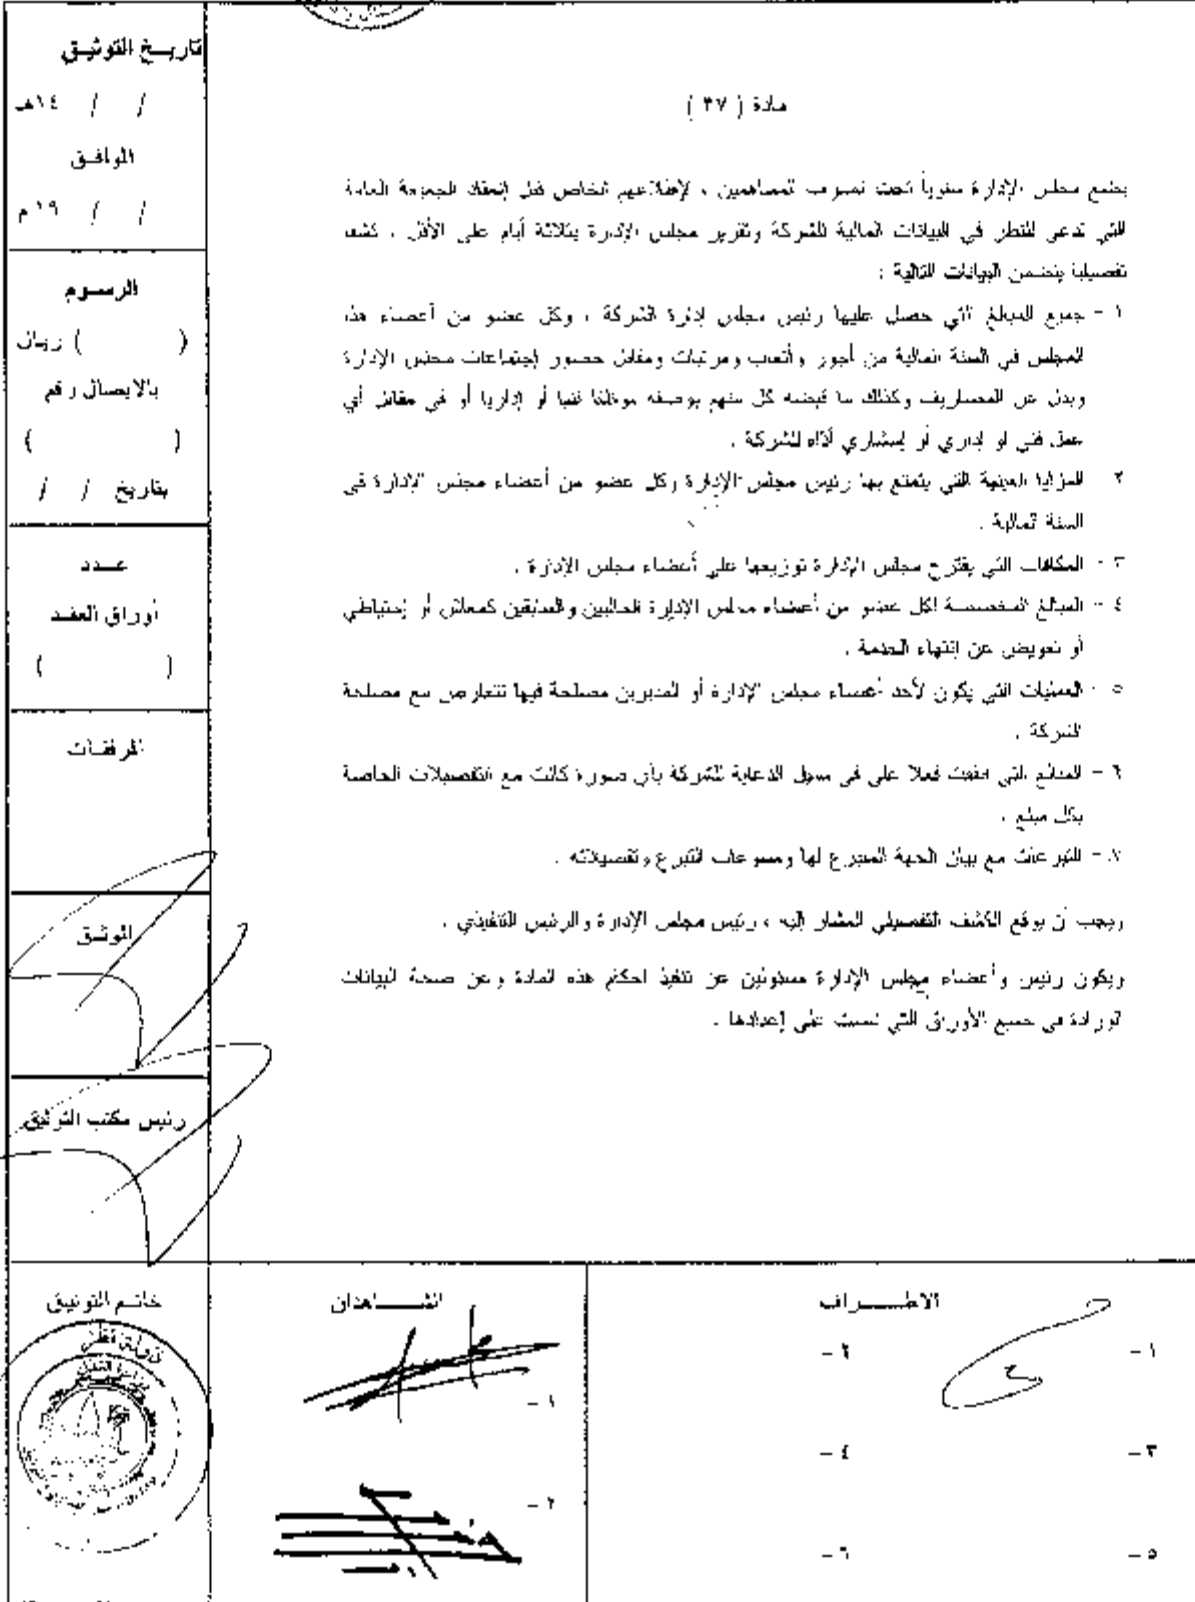 مادة ( ٣٧ )
يضع مجلس الإدارة سنوياً تحت تصرف المساهمين ، لإطلاعهم الخاص قبل إنعقاد الجمعية العامة
التي تدعى للنظر في البيانات المالية للشركة وتقرير مجلس الإدارة بثلاثة أيام على الأقل ، كشفا
تفصيليا يتضمن البيانات التالية :
١ - جميع المبالغ التي حصل عليها رئيس مجلس إدارة الشركة ، وكل عضو من أعضاء هذا
المجلس في السنة المالية من أجور وأتعاب ومرتبات ومقابل حضور إجتماعات مجلس الإدارة
وبدل عن المصاريف وكذلك ما قبضه كل منهم بوصفه موظفا فنيا أو إداريا أو في مقابل أي
عمل فني او إداري أو إستشاري أداه للشركة .
٢ المزايا العينية التي يتمتع بها رئيس مجلس الإدارة وكل عضو من أعضاء مجلس الإدارة في
السنة المالية .
٣ - المكافات التي يقترح مجلس الإدارة توزيعها على أعضاء مجلس الإدارة .
٤ - المبالغ المخصصة لكل عضو من أعضاء مجلس الإدارة الحاليين والسابقين كمعاش أو إحتياطي
أو تعويض عن إنتهاء الخدمة .
٥ - العمليات التي يكون لأحد أعضاء مجلس الإدارة أو المديرين مصلحة فيها تتعارض مع مصلحة
الشركة .
٦ - المبالغ التي انفقت فعلا على في سبيل الدعاية للشركة بأي صورة كانت مع التفصيلات الخاصة
بكل مبلغ .
٧ - التبرعات مع بيان الجهة المتبرع لها ومسوغات التبرع وتفصيلاته .
ويجب أن يوقع الكشف التفصيلي المشار إليه ، رئيس مجلس الإدارة والرئيس التنفيذي .
ويكون رئيس وأعضاء مجلس الإدارة مسئولين عن تنفيذ احكام هذه المادة وعن صحة البيانات
الورادة في جميع الأوراق التي نصت على إعدادها .
تاريـخ التوثيـق
/ / ١٤هـ
الموافـق
/ / ١٩م
الرسـوم
( ) ريـال
بالايصال رقم
( )
بتاريخ / /
عــدد
أوراق العقـد
( )
المرفقـات
الموثـق
رئيس مكتب التوثيق
خاتـم التوثيق
دولة قطر
الشـــاهدان
١ -
٢ -
الاطــــراف
١ - ٢ -
٣ - ٤ -
٥ - ٦ -